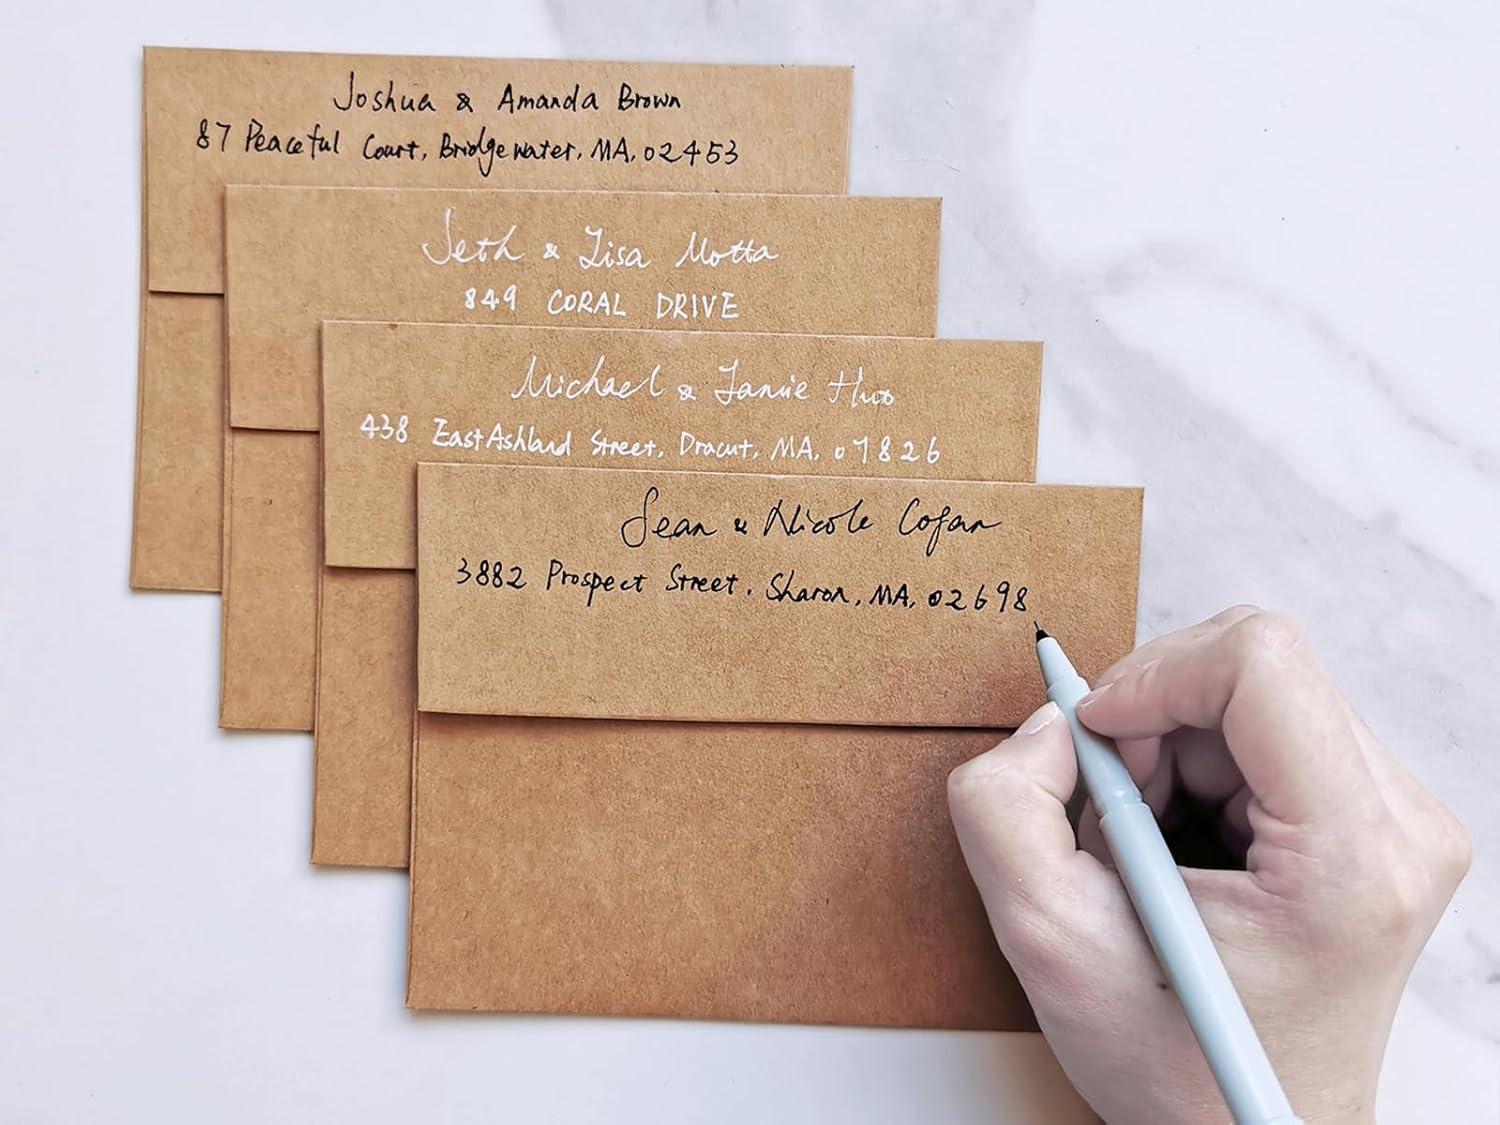 Joshua & Amanda Brown
87 Peaceful Court, Bridgewater, MA, 02453
Seth & Lisa Motta
849 CORAL DRIVE
Michael & Jamie
438 East Ashland Street, Dracut, MA, 07826
Sean & Nicole Cofan
3882 Prospect Street, Sharon, MA, 02698